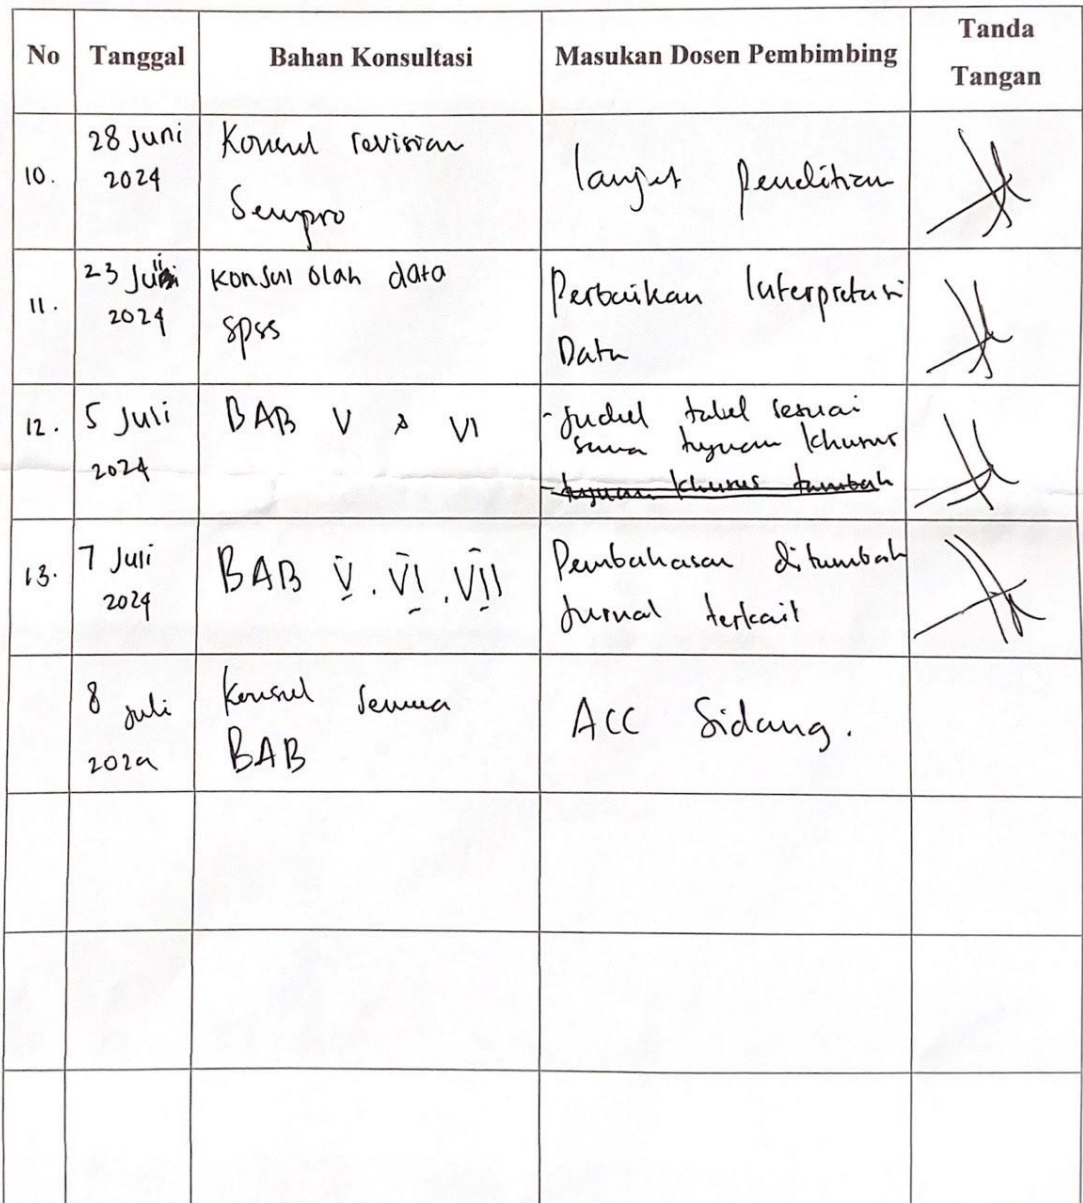 No Tanggal Bahan Konsultasi Masukan Dosen Pembimbing Tanda Tangan
10. 28 Juni 2024
Konsul revisian
Sempro
lanjut penelitian
11. 23 Juni 2024
Konsul olah data
SPSS
Perbaikan Interpretasi
Data
12. 5 Juli 2024
BAB V & VI
- Judul tabel sesuai
sama tujuan khusus
- tujuan khusus tambah
13. 7 Juli 2024
BAB V. VI. VII
Pembahasan ditambah
Jurnal terkait
8 Juli 2024
Konsul semua
BAB
ACC Sidang.